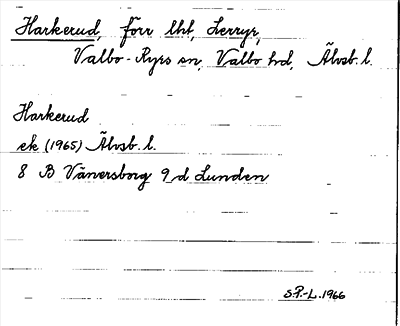 Harkerud, förr lht, Herryr,
Valbo-Ryrs sn, Valbo hd, Älvsb. l.
Harkerud
ek (1965) Älvsb. l.
8 B Vänersborg 9 d Lunden
S.P.-L. 1966